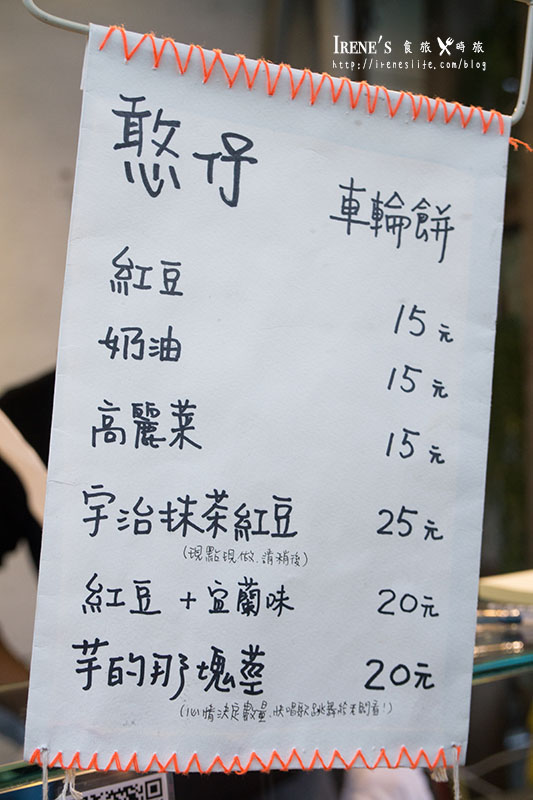 IRENE'S 食旅時旅
http://ireneslife.com/blog
憨仔
車輪餅
紅豆 15元
奶油 15元
高麗菜 15元
宇治抹茶紅豆 25元
(現點現做.請稍後)
紅豆+宜蘭味 20元
芋的那塊莖 20元
(心情決定數量.快唱歌跳舞給老闆看!)